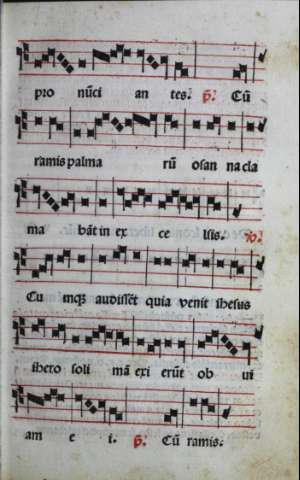 pro nūci an tes. ꝶ. Cū
ramis palma rū osan na cla
ma bāt in ex ce lsis. ℣.
Cu mqꝫ audisset quia venit ihesus
ihero soli mā exi erūt ob vi
am e i. ꝶ. Cū ramis.